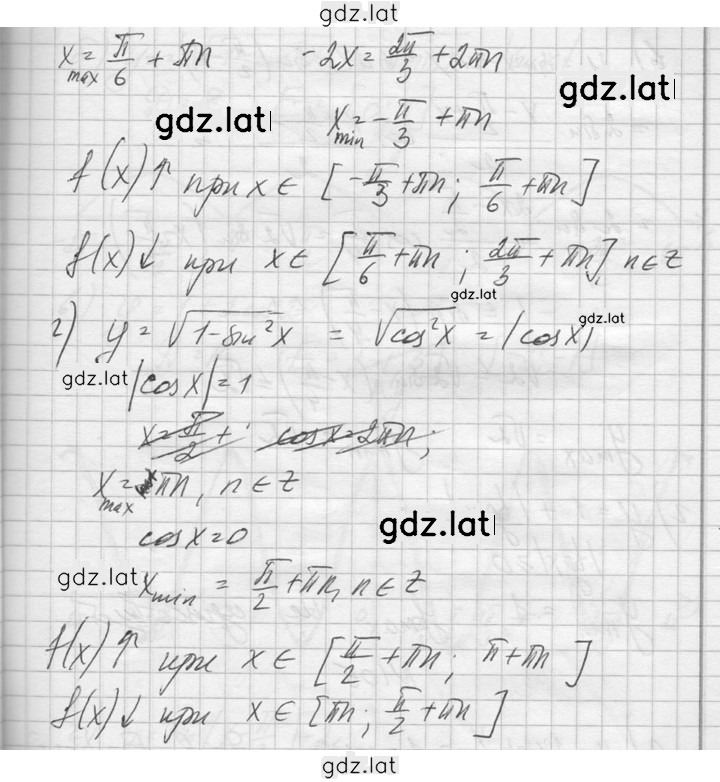 gdz.lat
x max = π/6 + πn    -2x = 2π/3 + 2πn
gdz.lat
gdz.lat
x min = -π/3 + πn
f(x)↑ при x ∈ [-π/3 + πn; π/6 + πn]
f(x)↓ при x ∈ [π/6 + πn; 2π/3 + πn], n ∈ Z
gdz.lat
gdz.lat
2) y = √(1-sin²x) = √(cos²x) = |cosx|
gdz.lat
|cosx| = 1
x = π/2 +    cosx = 2πn;
x max = πn, n ∈ Z
cosx = 0
gdz.lat
gdz.lat
x min = π/2 + πn, n ∈ Z
f(x)↑ при x ∈ [π/2 + πn; π + πn]
f(x)↓ при x ∈ [πn; π/2 + πn]
gdz.lat